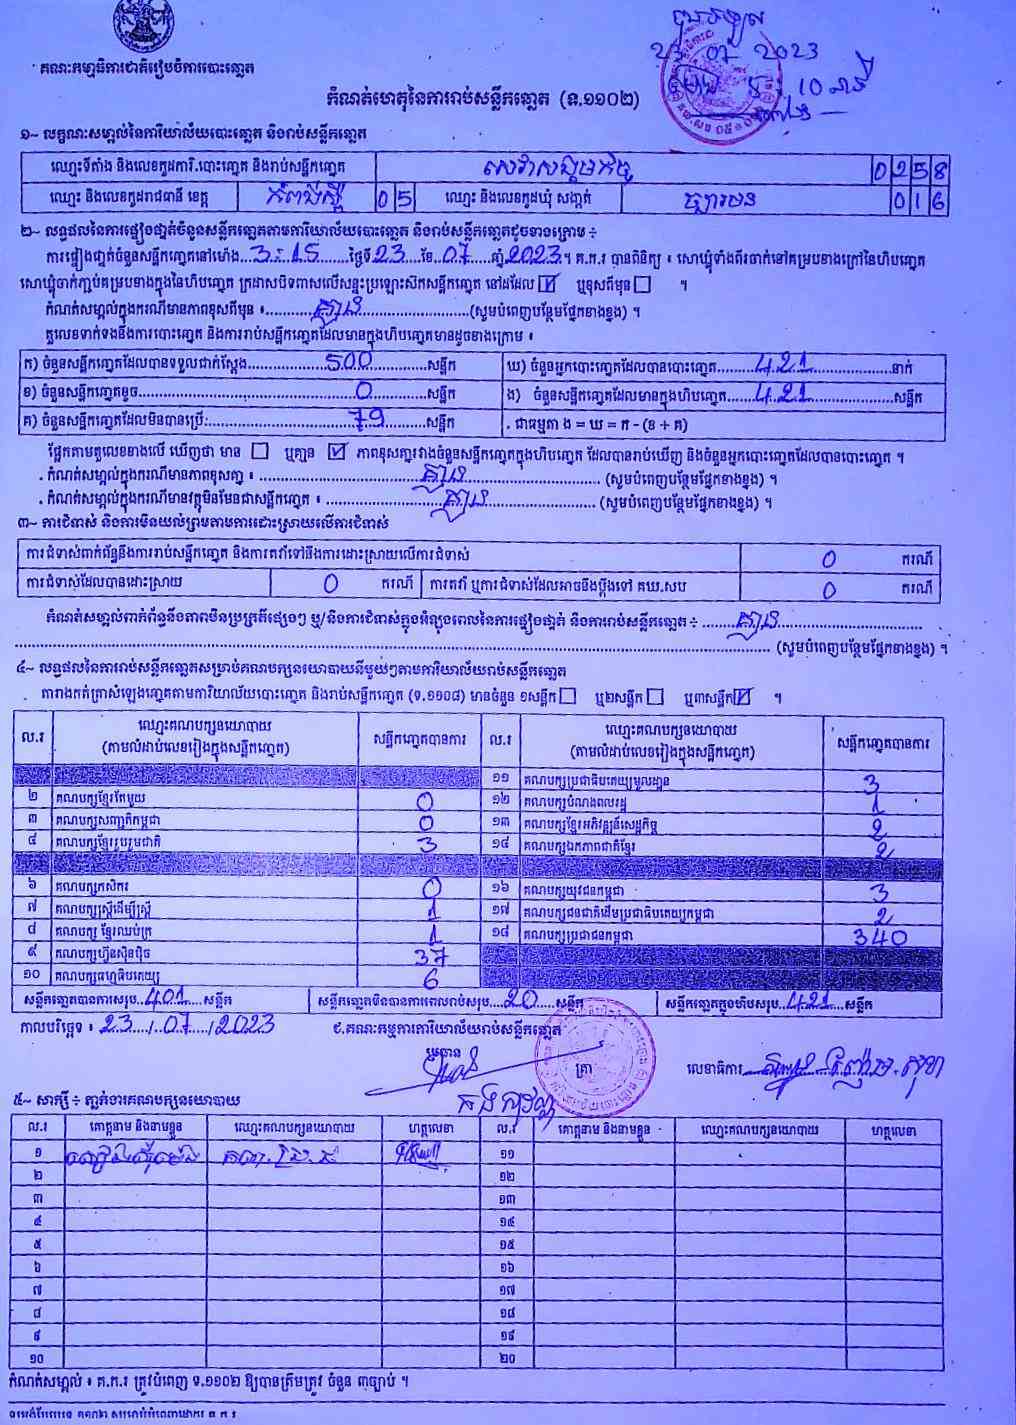 គណៈកម្មាធិការជាតិរៀបចំការបោះឆ្នោត
23 07 2023
10 នាទី
កំណត់ហេតុនៃការរាប់សន្លឹកឆ្នោត (ទ.១១០២)
១~ លក្ខណៈសម្គាល់នៃការិយាល័យបោះឆ្នោត និងរាប់សន្លឹកឆ្នោត
ឈ្មោះទីតាំង និងលេខកូដការិ.បោះឆ្នោត និងរាប់សន្លឹកឆ្នោត 0258
ឈ្មោះ និងលេខកូដរាជធានី ខេត្ត កំពង់ស្ពឺ 05 ឈ្មោះ និងលេខកូដឃុំ សង្កាត់ 016
២~ លទ្ធផលនៃការផ្ទៀងផ្ទាត់ចំនួនសន្លឹកឆ្នោតតាមការិយាល័យបោះឆ្នោត និងរាប់សន្លឹកឆ្នោតដូចខាងក្រោម ÷
ការផ្ទៀងផ្ទាត់ចំនួនសន្លឹកឆ្នោតនៅម៉ោង 3:15 ថ្ងៃទី 23 ខែ 07 ឆ្នាំ 2023 ។ គ.ក.រ បានពិនិត្យ ៖ សោឃ្មុំទាំងពីរចាក់នៅគម្របខាងក្រៅនៃហិបឆ្នោត
សោឃ្មុំចាក់ភ្ជាប់គម្របខាងក្នុងនៃហិបឆ្នោត ក្រដាសបិទពាសលើសន្ទះប្រឡោះស៊កសន្លឹកឆ្នោត នៅដដែល ☑ ឬខុសពីមុន ☐ ។
កំណត់សម្គាល់ក្នុងករណីមានភាពខុសពីមុន ៖ គ្មាន (សូមបំពេញបន្ថែមផ្នែកខាងខ្នង) ។
តួលេខទាក់ទងនឹងការបោះឆ្នោត និងការរាប់សន្លឹកឆ្នោតដែលមានក្នុងហិបឆ្នោតមានដូចខាងក្រោម ៖
ក) ចំនួនសន្លឹកឆ្នោតដែលបានទទួលជាក់ស្តែង 500 សន្លឹក ឃ) ចំនួនអ្នកបោះឆ្នោតដែលបានបោះឆ្នោត 421 នាក់
ខ) ចំនួនសន្លឹកឆ្នោតខូច 0 សន្លឹក ង) ចំនួនសន្លឹកឆ្នោតដែលមានក្នុងហិបឆ្នោត 421 សន្លឹក
គ) ចំនួនសន្លឹកឆ្នោតដែលមិនបានប្រើ: 79 សន្លឹក . ជាធម្មតា ង = ឃ = ក - (ខ + គ)
ផ្អែកតាមតួលេខខាងលើ ឃើញថា មាន ☐ ឬគ្មាន ☑ ភាពខុសគ្នារវាងចំនួនសន្លឹកឆ្នោតក្នុងហិបឆ្នោត ដែលបានរាប់ឃើញ និងចំនួនអ្នកបោះឆ្នោតដែលបានបោះឆ្នោត ។
. កំណត់សម្គាល់ក្នុងករណីមានភាពខុសគ្នា ៖ គ្មាន (សូមបំពេញបន្ថែមផ្នែកខាងខ្នង) ។
. កំណត់សម្គាល់ក្នុងករណីមានវត្ថុមិនមែនជាសន្លឹកឆ្នោត ៖ គ្មាន (សូមបំពេញបន្ថែមផ្នែកខាងខ្នង) ។
៣~ ការជំទាស់ និងការមិនយល់ព្រមតាមការដោះស្រាយលើការជំទាស់
ការជំទាស់ពាក់ព័ន្ធនឹងការរាប់សន្លឹកឆ្នោត និងការតវ៉ាទៅនឹងការដោះស្រាយលើការជំទាស់ 0 ករណី
ការជំទាស់ដែលបានដោះស្រាយ 0 ករណី ការតវ៉ា ឬការជំទាស់ដែលអាចនឹងប្តឹងទៅ គឃ.សប 0 ករណី
កំណត់សម្គាល់ពាក់ព័ន្ធនឹងភាពមិនប្រក្រតីផ្សេងៗ ឬ/និងការជំទាស់ក្នុងអំឡុងពេលនៃការផ្ទៀងផ្ទាត់ និងការរាប់សន្លឹកឆ្នោត ÷ គ្មាន
(សូមបំពេញបន្ថែមផ្នែកខាងខ្នង) ។
៤~ លទ្ធផលនៃការរាប់សន្លឹកឆ្នោតសម្រាប់គណបក្សនយោបាយនីមួយៗតាមការិយាល័យរាប់សន្លឹកឆ្នោត
តារាងកត់ត្រាសំឡេងឆ្នោតតាមការិយាល័យបោះឆ្នោត និងរាប់សន្លឹកឆ្នោត (ទ.១១០៨) មានចំនួន ១សន្លឹក ☐ ឬ២សន្លឹក ☐ ឬ៣សន្លឹក ☑ ។
ល.រ ឈ្មោះគណបក្សនយោបាយ (តាមលំដាប់លេខរៀងក្នុងសន្លឹកឆ្នោត) សន្លឹកឆ្នោតបានការ ល.រ ឈ្មោះគណបក្សនយោបាយ (តាមលំដាប់លេខរៀងក្នុងសន្លឹកឆ្នោត) សន្លឹកឆ្នោតបានការ
១១ គណបក្សប្រជាធិបតេយ្យមូលដ្ឋាន 3
២ គណបក្សខ្មែរតែមួយ 0 ១២ គណបក្សបំណងពលរដ្ឋ 1
៣ គណបក្សសញ្ជាតិកម្ពុជា 0 ១៣ គណបក្សខ្មែរអភិវឌ្ឍន៍សេដ្ឋកិច្ច 2
៤ គណបក្សខ្មែររួបរួមជាតិ 3 ១៤ គណបក្សឯកភាពជាតិខ្មែរ 2
៦ គណបក្សកសិករ 0 ១៦ គណបក្សយុវជនកម្ពុជា 3
៧ គណបក្សស្ត្រីដើម្បីស្ត្រី 1 ១៧ គណបក្សជនជាតិដើមប្រជាធិបតេយ្យកម្ពុជា 2
៨ គណបក្ស ខ្មែរឈប់ក្រ 1 ១៨ គណបក្សប្រជាជនកម្ពុជា 340
៩ គណបក្សហ៊្វុនស៊ិនប៉ិច 37
១០ គណបក្សធម្មាធិបតេយ្យ 6
សន្លឹកឆ្នោតបានការសរុប 401 សន្លឹក សន្លឹកឆ្នោតមិនបានការពេលរាប់សរុប 20 សន្លឹក សន្លឹកឆ្នោតក្នុងហិបសរុប 421 សន្លឹក
កាលបរិច្ឆេទ ៖ 23/07/2023 ជ.គណៈកម្មការការិយាល័យរាប់សន្លឹកឆ្នោត
ប្រធាន
ត្រា លេខាធិការ
៥~ សាក្សី ÷ ភ្នាក់ងារគណបក្សនយោបាយ
ល.រ គោត្តនាម និងនាមខ្លួន ឈ្មោះគណបក្សនយោបាយ ហត្ថលេខា ល.រ គោត្តនាម និងនាមខ្លួន ឈ្មោះគណបក្សនយោបាយ ហត្ថលេខា
១ ១១
២ ១២
៣ ១៣
៤ ១៤
៥ ១៥
៦ ១៦
៧ ១៧
៨ ១៨
៩ ១៩
១០ ២០
កំណត់សម្គាល់ ៖ គ.ក.រ ត្រូវបំពេញ ទ.១១០២ ឱ្យបានត្រឹមត្រូវ ចំនួន ៣ច្បាប់ ។